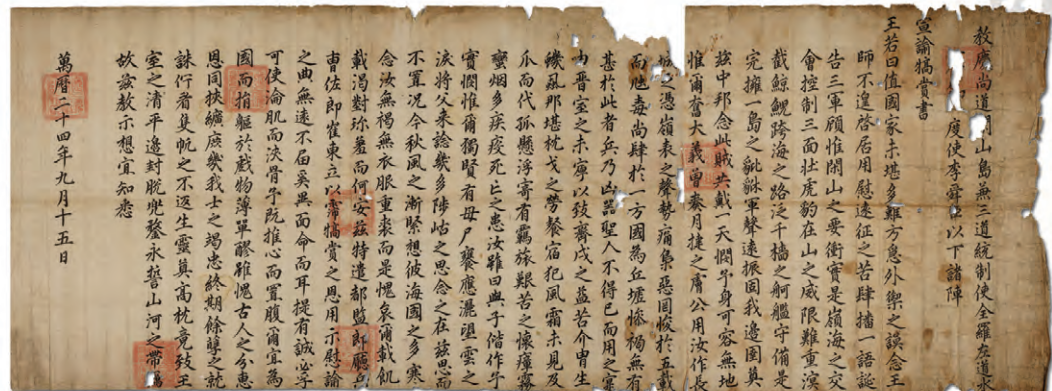 敎慶尙道閑山島兼三道統制使全羅左道
度使李舜臣以下諸陣
宣諭犒賞書
王若曰値國家未堪多難方息外禦之誤念王
師不遑啓居用慰遠征之苦肆播一語誕
告三軍顧惟閑山之要衝實是嶺海之交
會控制三面壯虎豹在山之威限難重溟
截鯨鯢跨海之路泛千檣之舸艦守備是
完擁一島之貔貅軍聲遠振固我邊圉莫
玆中邦念此賊共戴一天憫予身可容無地
惟爾奮大義曾奏月捷之膚公用汝作長
城之憑嶺表之聲勢痛集惡國悛於五載
而虺毒尙肆於一方國爲丘墟慘禍無有
甚於此者兵乃凶器聖人不得已而用之
由晉室之未寧以致齊戍之益苦介冑生
蟣虱那堪枕戈之勞餐宿犯風霜未見及
瓜而代孤懸浮寄有羈旅艱苦之懷瘴霧
蠻烟多疾疢死亡之患汝雖曰與子偕作予
實憫惟爾獨賢有母尸饔應灑望雲之
淚將父來諗幾多陟岵之思念之在玆思而
不置況今秋風之漸緊想彼海國之多寒
念汝無褐無衣服重裘而是愧哀爾載飢
載渴對珍羞而何安玆特遣都監郎廳兵
曹佐郎崔東立以霈犒賞之恩用示慰諭
之典無遠不屆奚異面命而耳提有誠必孚
可使淪肌而浹骨予旣推心而置腹爾宜爲
國而捐軀於戲物薄單醪雖愧古人之分惠
恩同挾纊庶幾我士之竭忠終期餘孽之就
誅佇看隻帆之不返生靈奠高枕竟致王
室之淸平邊封脫兜鍪永誓山河之帶礪
故玆敎示想宜知悉
萬曆二十四年九月十五日